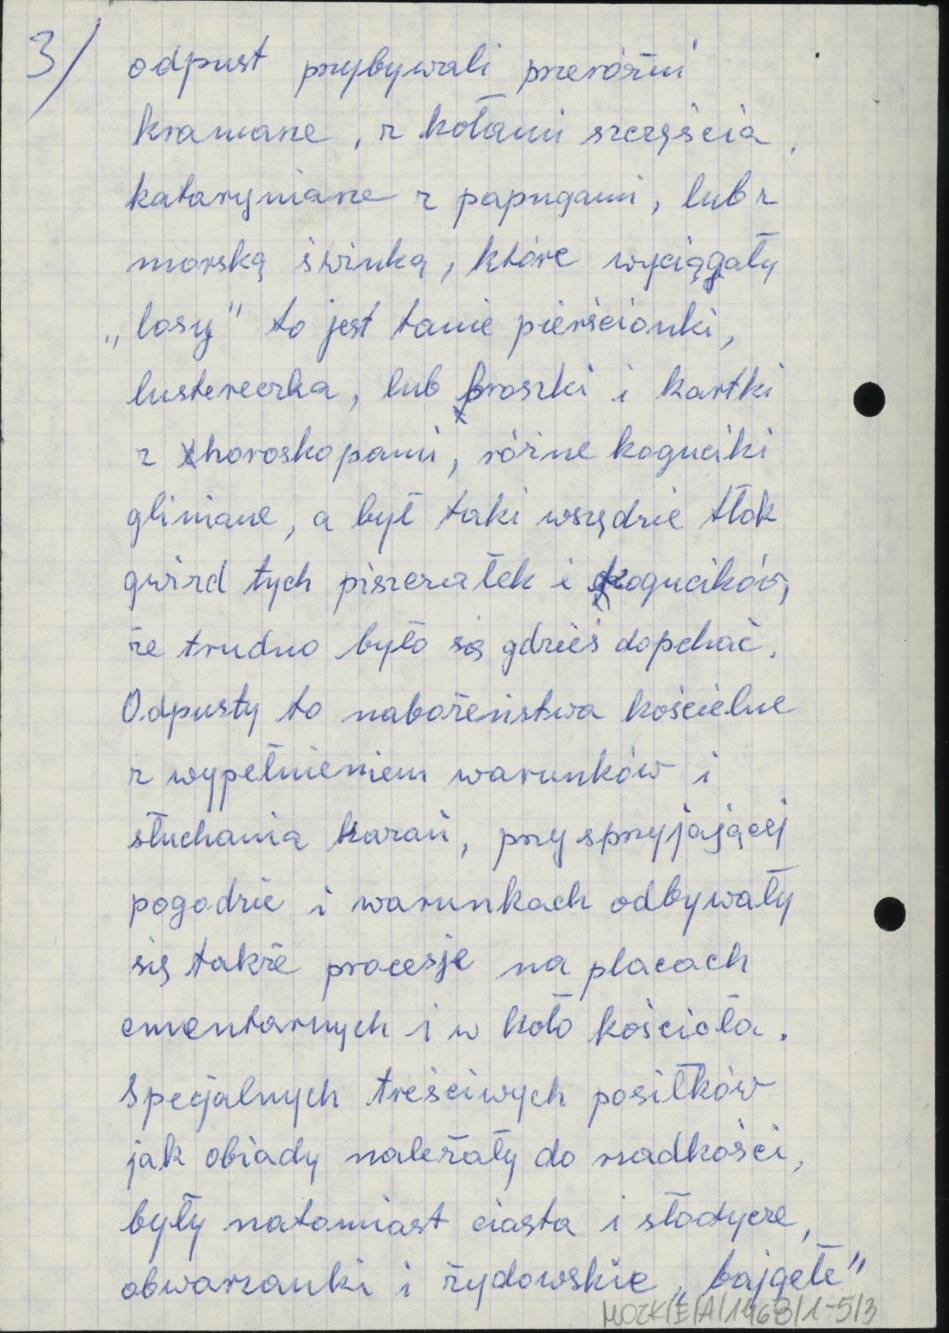 3/
odpust przybywali przeróżni
kramarze, z kołami szczęścia,
kataryniarze z papugami, lub z
morską świnką, które wyciągały
„losy" to jest tanie pierścionki,
lustereczka, lub proszki i kartki
z horoskopami, różne koguciki
gliniane, a był taki wszędzie tłok
gwizd tych piszczałek i kogucików,
że trudno było się gdzieś dopchać.
Odpusty to nabożeństwa kościelne
z wypełnieniem warunków i
słuchania kazań, przy sprzyjającej
pogodzie i warunkach odbywały
się także procesje na placach
cmentarnych i w koło kościoła.
Specjalnych treściwych posiłków
jak obiady należały do rzadkości,
były natomiast ciasta i słodycze,
obwarzanki i żydowskie „bajgełe"
MOZK/E/A/1968/1-5/3